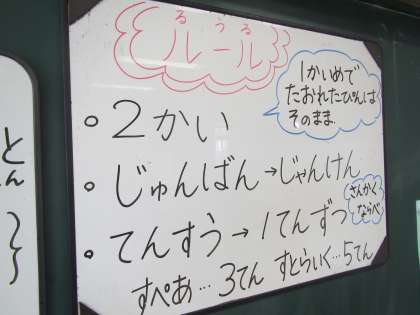 るうる
ルール
1かいめで
たおれたぴんは
そのまま.
○2かい
○じゅんばん→じゃんけん
さんかく
ならべ
○てんすう→1てんずつ
すぺあ…3てん すとらいく…5てん
とん